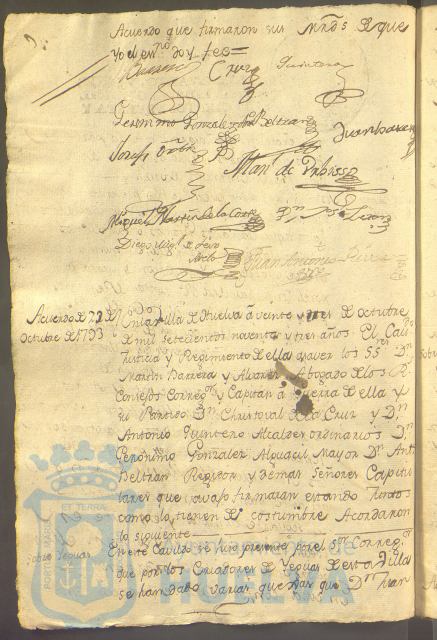 Acuerdo que firmaron sus Mrds de que
Yo el essno doy fee=
Barrera Cruz Quintero
Geronimo Gonzalez Antt Beltran Juan
Josef
Man de
Miguel Martin de la Corte Dn
Diego Migl de
Juan Antonio
Acuerdo de 23 de
Octubre de 1793
En la Villa de Huelva á veinte y tres de octubre
de mil setecientos noventa y tres años El Cavdo
Justicia y Regimiento de ella á saver los SSres Dn
Martin Barrera y Alvarez Abogado de los R
Consejos Corregor y Capitan á Guerra de ella y
su Partido Dn Christoval de la Cruz y Dn
Antonio Quintero Alcaldes ordinarios Dn
Geronimo Gonzalez Alguacil Mayor Dn Antt
Beltran Regidor y demas Señores Capitu
lares que avajo firmaran estando Juntos
como lo tienen de costumbre Acordaron
lo siguiente
Sobre Yeguas
En este Cavildo se hizo presente por el Sor Corregor
que por los Criadores de Yeguas de esta Villa
se han dado varias quejas que Dn Juan
PORTUS MARIS
ET TERRAE
HUELVA